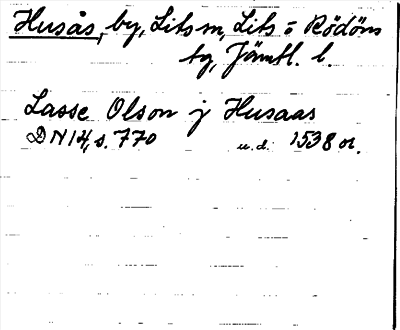 Husås, by, Lits sn, Lits o Rödöns
tg, Jämtl. l.
Lasse Olson j Husaas
DN 14, s. 770 u.d. 1538 or.